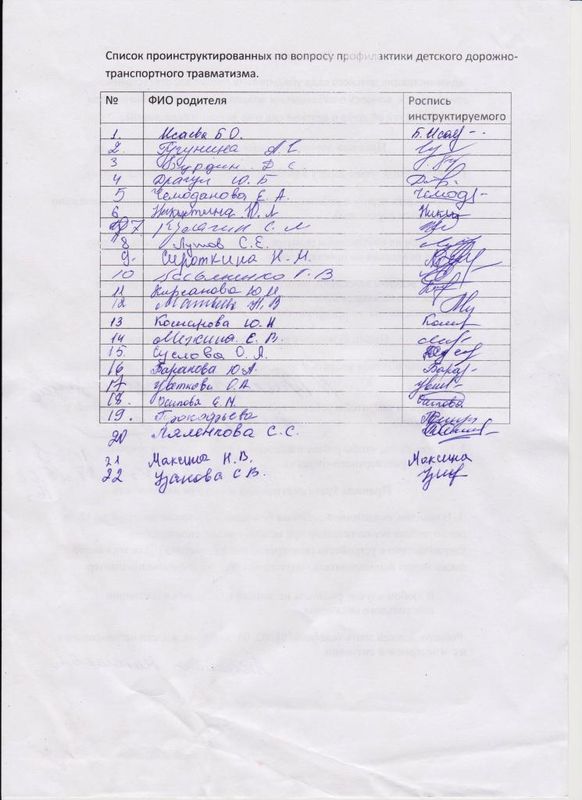 Список проинструктированных по вопросу профилактики детского дорожно-
транспортного травматизма.
№ ФИО родителя Роспись
инструктируемого
1 Исаева Б.О. Б.Исау
2. А С.
3 Бурдин. Д С.
4 Драгул Ю.Б
5 Чемоданова Е.А. Чемод
6 Никитина Ю.А Никит
7 С.М
8 Лутов С.Е.
9. Сироткина Н.М.
10 Г.В.
11 Кирсанова Ю.И
12 Н В
13 Комарова Ю.Н Комар
14 Мишина Е.В.
15 Суслова О.Я.
16 Баранова Ю.А Баран
17 О.А
18. Осипова Е.М. Осипова
19. Прокофьева
20 Халенкова С.С.
21 Максина Н.В. Максина
22 Узакова С В.